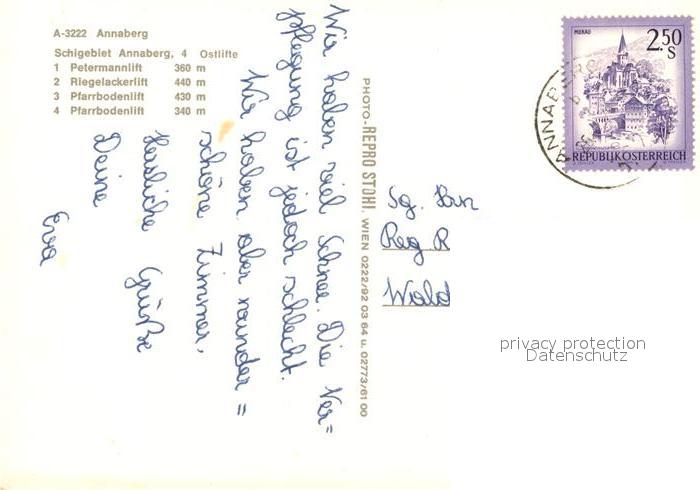 A-3222 Annaberg
Schigebiet Annaberg, 4 Ostlifte
1 Petermannlift 360 m
2 Riegelackerlift 440 m
3 Pfarrbodenlift 430 m
4 Pfarrbodenlift 340 m
Wir haben viel Schnee. Die Ver=
pflegung ist jedoch schlecht.
Wir haben aber wunder=
schöne Zimmer.
Herzliche Grüße
Deine
Eva
PHOTO-REPRO STOHL WIEN 0222/92 03 64 u. 02773/61 00
MURAU
2.50 S
REPUBLIK ÖSTERREICH
ANNABERG
Sg.
Reg R
Wald
privacy protection
Datenschutz